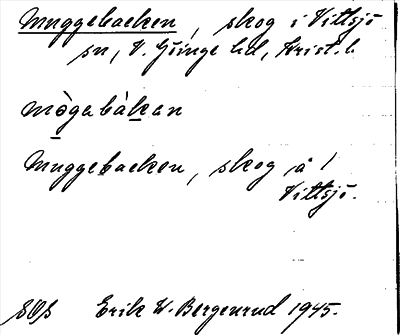 Muggebacken, skog i Vittsjö
sn, V. Göinge hd, Krist. l.
mògabàkan
Muggebacken, skog på /
Vittsjö.
SOS Erik W. Bergenrud 1945.